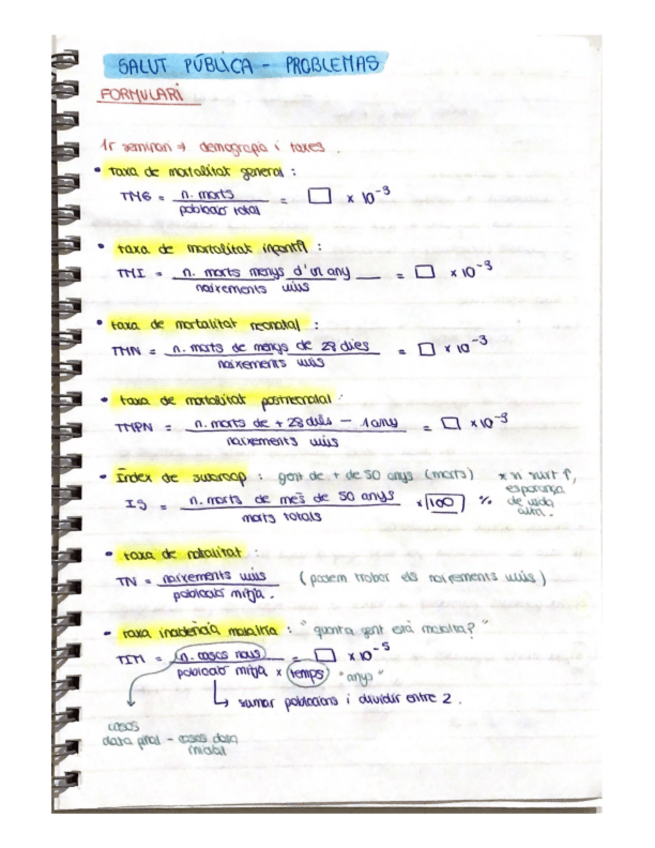 SALUT PÚBLICA - PROBLEMAS
FORMULARI
1r seminari → demografia i taxes.
• taxa de mortalitat general :
TMG = n. morts / població total = □ x 10⁻³
• taxa de mortalitat infantil :
TMI = n. morts menys d'un any / naixements vius = □ x 10⁻³
• taxa de mortalitat neonatal :
TMN = n. morts de menys de 28 dies / naixements vius = □ x 10⁻³
• taxa de mortalitat postneonatal :
TMPN = n. morts de + 28 dies - 1 any / naixements vius = □ x 10⁻³
• Índex de swaroop : gent de + de 50 anys (morts) * n surt ↑, esperança de vida alta.
IS = n. morts de més de 50 anys / morts totals x 100 %
• taxa de natalitat :
TN = naixements vius / població mitja. (podem trobar els naixements vius)
• taxa incidència malaltia : "quanta gent està malalta?"
TIM = n. casos nous / població mitja x temps = □ x 10⁻⁵ "anys"
↳ sumar poblacions i dividir entre 2.
casos
data final - casos data
inicial